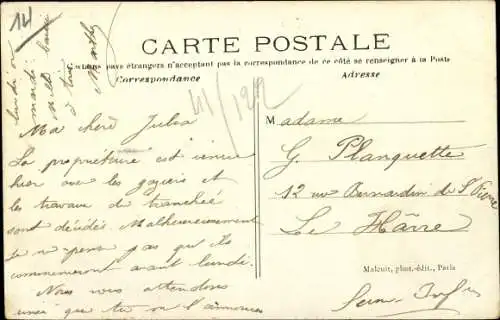 14
CARTE POSTALE
Certains pays étrangers n'acceptant pas la correspondance de ce côté se renseigner à la Poste
Correspondance
Adresse
lundi ou
mardi
mille baisers
à tous
Marthe
Ma chère Julia
La propriétaire est venue
hier voir les gaziers et
les travaux de tranchée
sont décidés. Malheureusement
Je ne pense pas qu'ils
commenceront avant lundi.
Nous vous attendons
ainsi que tu l'annonces
Madame
G. Planquette
12 rue Bernardin de St Pierre
Le Hâvre
Malcuit, phot.-édit., Paris
Seine Infre